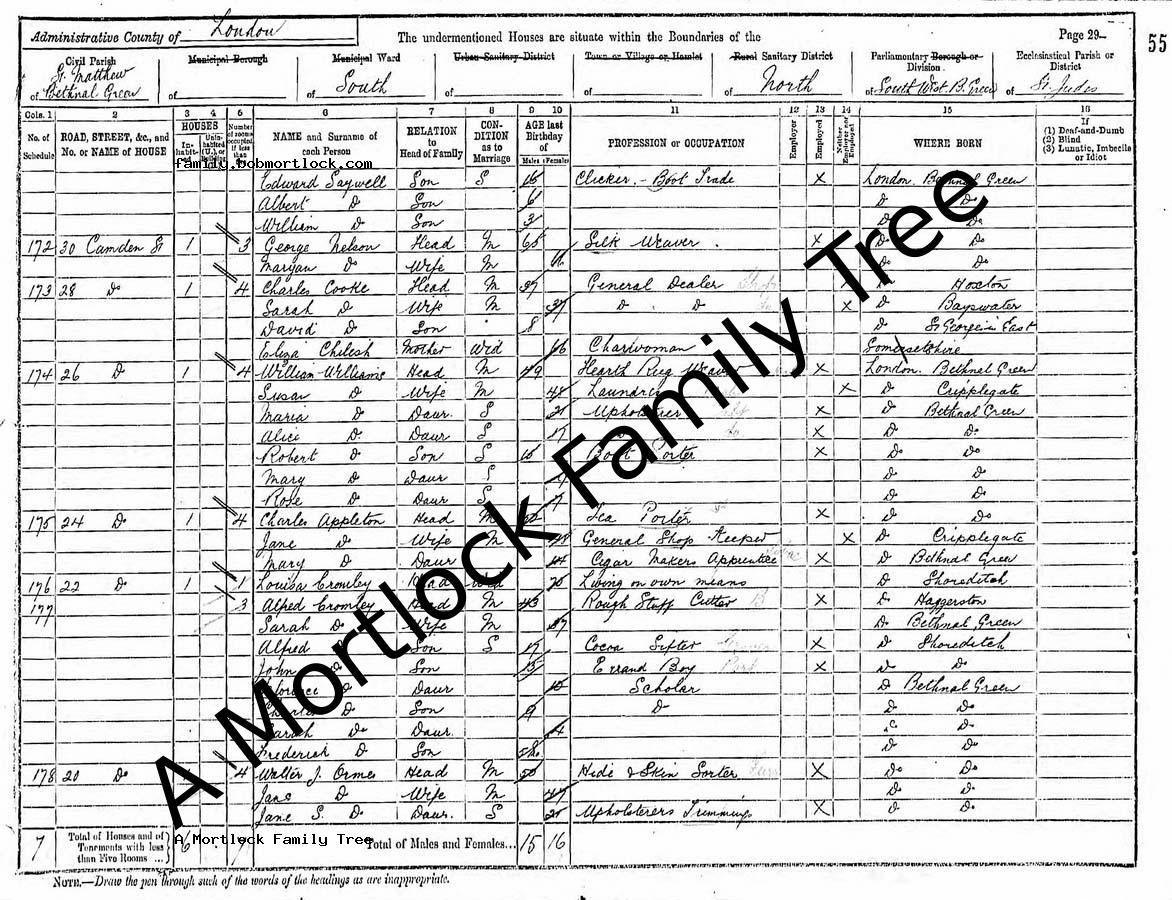 Administrative County of London
The undermentioned Houses are situate within the Boundaries of the
Page 29
55
Civil Parish of St. Matthew Bethnal Green
Municipal Borough of
Municipal Ward of South
Urban Sanitary District of
Town or Village or Hamlet of
Rural Sanitary District of North
Parliamentary Borough or Division of South West B. Green
Ecclesiastical Parish or District of St. Judes
Cols. 1 2 3 4 5 6 7 8 9 10 11 12 13 14 15 16
No. of Schedule
ROAD, STREET, &c., and No. or NAME of HOUSE
HOUSES
NAME and Surname of each Person
RELATION to Head of Family
CONDITION as to Marriage
AGE last Birthday of
Males Females
PROFESSION or OCCUPATION
Employer
Employed
Neither Employer nor Employed
WHERE BORN
If
(1) Deaf-and-Dumb
(2) Blind
(3) Lunatic, Imbecile or Idiot
family.bobmortlock.com
Edward Saywell Son S 16 Clicker - Boot Trade X London Bethnal Green
Albert Do Son 6 Do Do
William Do Son 3 Do
172 30 Camden St 1 3 George Nelson Head M 65 Silk Weaver X Do Do
Maryan Do Wife M Do Do
173 28 Do 1 4 Charles Cooke Head M 37 General Dealer Do Hoxton
Sarah Do Wife M 37 Do Do X Do Bayswater
David Do Son 8 Do St Georges in East
Eliza Mother Wid 66 Charwoman Somersetshire
174 26 Do 1 4 William Williams Head M 49 Hearth Rug Weaver X London Bethnal Green
Susan Do Wife M 48 X Do Cripplegate
Maria Do Daur. S 21 Upholsterer X Do Bethnal Green
Alice Do Daur S 17 X Do Do
Robert Do Son S 15 Boot Porter X Do Do
Mary Do Daur S Do Do
Rose Do Daur S Do Do
175 24 Do 1 4 Charles Appleton Head M Tea Porter X Do Do
Jane Do Wife M General Shop Keeper X Do Cripplegate
Mary Do Daur 14 Cigar Makers Apprentice X Do Bethnal Green
176 22 Do 1 1 Louisa Cromley Head Wid 70 Living on own means Do Shoreditch
177 3 Alfred Cromley Head M 43 Rough Stuff Cutter X Do Haggerston
Sarah Do Wife M 37 Do Bethnal Green
Alfred Do Son S 17 Cocoa Sifter X Do Shoreditch
John Do Son 15 Errand Boy X Do Do
Florence Do Daur 12 Scholar Do Bethnal Green
Charles Do Son 9 Do Do Do
Sarah Do Daur. 4 Do Do
Frederick Do Son Do Do
178 20 Do 4 Walter J. Orme Head M 50 Hide & Skin Sorter X Do Do
Jane Do Wife M 47 Do Do
Jane S. Do Daur. S 21 Upholsterers Trimmings X Do Do
7 Total of Houses and of Tenements with less than Five Rooms ... 6 7 Total of Males and Females... 15 16
A Mortlock Family Tree
NOTE.—Draw the pen through such of the words of the headings as are inappropriate.
A Mortlock Family Tree